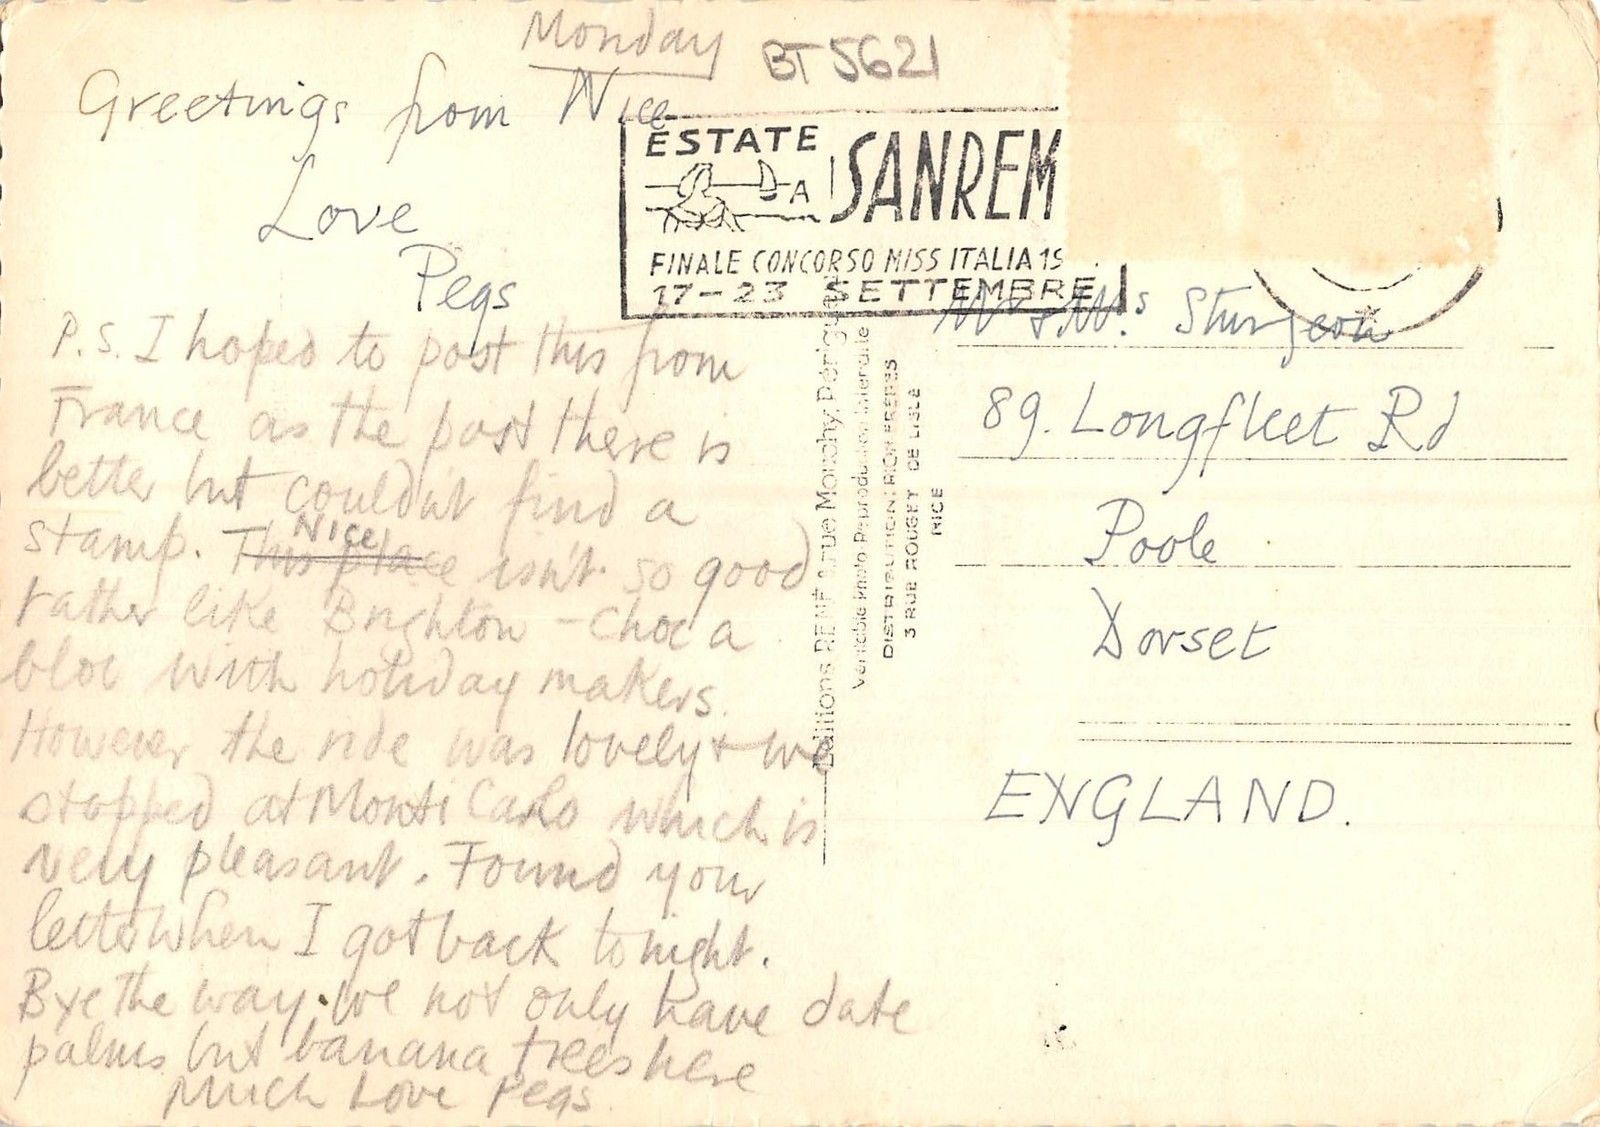 Monday
BT 5621
Greetings from Nice
Love
Pegs
P.S. I hoped to post this from
France as the post there is
better but couldn't find a
stamp. This place Nice isn't so good
rather like Brighton - choc a
bloc with holiday makers.
However the ride was lovely & we
stopped at Monti Carlo which is
very pleasant. Found your
letter when I got back tonight.
Bye the way we not only have date
palms but banana trees here
Much Love Pegs
ESTATE
A SANREM
FINALE CONCORSO MISS ITALIA 19
17-23 SETTEMBRE
Editions RENÉ rue Monchy, Périgueux
Véritable Photo Reproduction Interdite
DISTRIBUTION: RION FRERES
3 RUE ROUGET DE LISLE
NICE
Mr & Mrs Sturgeon
89. Longfleet Rd
Poole
Dorset
ENGLAND.